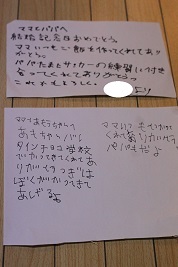 ママとパパへ
結婚記念日おめでとう。
ママいつもご飯を作ってくれてあり
がとう。
パパたまにサッカーの練習に付き
合ってくれてありがとう
これからもよろしく。
より
ママとおとうちゃんへ
おもちゃバル
タインチョコ学校
でかってきてくれてあ
りがとうつぎは
ぼくがかってきて
あげるよ
ママいつも
くれてありがとう
パパもだよ